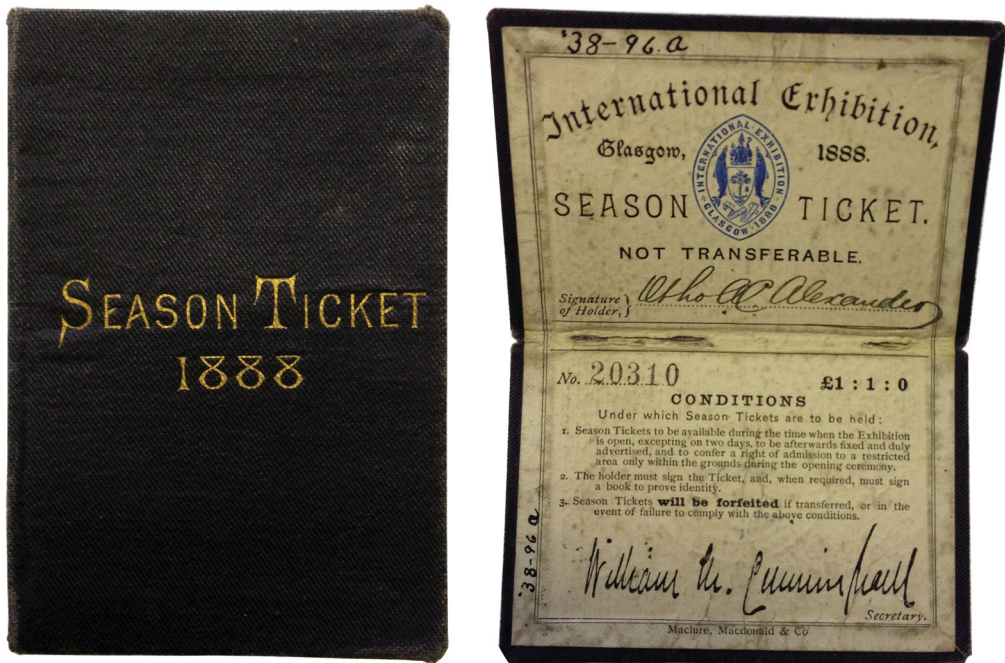 SEASON TICKET
1888
'38-96.a
International Exhibition,
Glasgow, 1888.
INTERNATIONAL · EXHIBITION
GLASGOW · 1888
SEASON TICKET.
NOT TRANSFERABLE.
Signature of Holder, } Otho Alexander
No. 20310 £1 : 1 : 0
CONDITIONS
Under which Season Tickets are to be held :
1. Season Tickets to be available during the time when the Exhibition
is open, excepting on two days, to be afterwards fixed and duly
advertised, and to confer a right of admission to a restricted
area only within the grounds during the opening ceremony.
2. The holder must sign the Ticket, and, when required, must sign
a book to prove identity.
3. Season Tickets will be forfeited if transferred, or in the
event of failure to comply with the above conditions.
'38-96 a
William M. Cunninghall
Secretary.
Maclure, Macdonald & Co